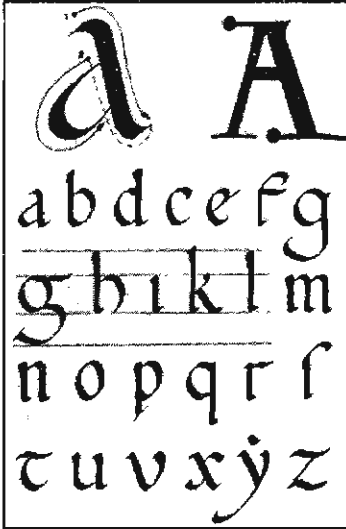 a A
a b d c e f g
g h ı k l m
n o p q r ſ
τ u v x ẏ z